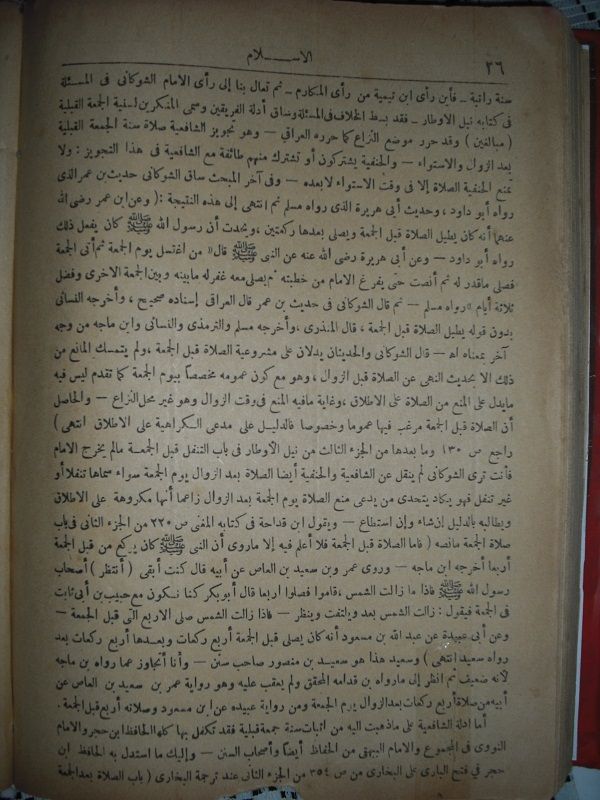 ٣٦
الاســـلام
سنة راتبة ــ فأين رأى ابن تيمية من رأى المكارم ــ ثم تعال بنا إلى رأى الامام الشوكانى فى المسئلة
فى كتابه نيل الاوطار ــ فقد بسط الخلاف فى المسئلة وساق أدلة الفريقين وسمى المنكرين لسنية الجمعة القبلية
( مبالغين ) وقد حرر موضع النزاع كما حرره العراقى ــ وهو تجويز الشافعية صلاة سنة الجمعة القبلية
بعد الزوال والاستواء ــ والحنفية يشتركون أو تشترك منهم طائفة مع الشافعية فى هذا التجويز : ولا
تمنع الحنفية الصلاة إلا فى وقت الاستواء لا بعده ــ وفى آخر المبحث ساق الشوكانى حديث بن عمر الذى
رواه أبو داود ، وحديث أبى هريرة الذى رواه مسلم ثم انتهى إلى هذه النتيجة : ( وعن ابن عمر رضى الله
عنهما أنه كان يطيل الصلاة قبل الجمعة ويصلى بعدها ركعتين ، ويحدث أن رسول الله ﷺ كان يفعل ذلك
رواه أبو داود ــ وعن أبى هريرة رضى الله عنه عن النبى ﷺ قال « من اغتسل يوم الجمعة ثم أتى الجمعة
فصلى ماقدر له ثم أنصت حتى يفرغ الامام من خطبته ثم يصلى معه غفر له مابينه وبين الجمعة الاخرى وفضل
ثلاثة أيام » رواه مسلم ــ ثم قال الشوكانى فى حديث بن عمر قال العراقى إسناده صحيح ، وأخرجه النسائى
بدون قوله يطيل الصلاة قبل الجمعة ، قال المنذرى ، وأخرجه مسلم والترمذى والنسائى وابن ماجه من وجه
آخر بمعناه اه ــ قال الشوكانى والحديثان يدلان على مشروعية الصلاة قبل الجمعة ، ولم يتمسك المانع من
ذلك الا بحديث النهى عن الصلاة قبل الزوال ، وهو مع كون عمومه مخصصاً بيوم الجمعة كما تقدم ليس فيه
مايدل على المنع من الصلاة على الاطلاق ، وغاية مافيه المنع فى وقت الزوال وهو غير محل النزاع ــ والحاصل
أن الصلاة قبل الجمعة مرغب فيها عموما وخصوصا فالدليل على مدعى الكراهية على الاطلاق انتهى )
راجع ص ١٣٠ وما بعدها من الجزء الثالث من نيل الاوطار فى باب التنفل قبل الجمعـة مالم يخرج الامام
فأنت ترى الشوكانى لم ينقل عن الشافعية والحنفية أيضا الصلاة بعد الزوال يوم الجمعة سواء سماها تنفلا أو
غير تنفل فهو يكاد يتحدى من يدعى منع الصلاة يوم الجمعة بعد الزوال زاعما أنها مكروهة على الاطلاق
ويطالبه بالدليل إن شاء وإن استطاع ــ ويقول ابن قدامة فى كتابه المغنى ص ٢٢٠ من الجزء الثانى فى باب
صلاة الجمعة مانصه ( فاما الصلاة قبل الجمعة فلا أعلم فيه إلا ماروى أن النبى ﷺ كان يركع من قبل الجمعة
أربعا أخرجه ابن ماجه ــ وروى عمر وبن سعيد بن العاص عن أبيه قال كنت أبقى ( أنتظر ) أصحاب
رسول الله ﷺ فاذا ما زالت الشمس ، قاموا فصلوا اربعا قال أبو بكر كنا نـكون مع حبيب بن أبى ثابت
فى الجمعة فيقول : زالت الشمس بعد ويلتفت وينظر ــ فاذا زالت الشمس صلى الاربع التى قبل الجمعة ــ
وعن أبى عبيدة عن عبد الله بن مسعود أنه كان يصلى قبل الجمعة أربع ركعات وبعـدها أربع ركعات بعد
رواه سعيد انتهى ) وسعيد هذا هو سعيـد بن منصور صاحب سنن ــ وأنا أتجاوز عما رواه بن ماجه
لانه ضعيف ثم انظر إلى مارواه بن قدامه المحقق ولم يعقب عليه وهو رواية عمر بن سعيد بن العاص عن
أبيه من صلاة أربع ركعات بعد الزوال يرم الجمعة ومن رواية عبيده عن ابن مسعود وصلاته أربع قبل الجمعة .
أما ادلة الشافعية على ماذهبت اليه من اثبات سنة جمعة قبلية فقد تكفل بها كلها الحافظ ابن حجر والامام
النووى فى المجموع والامام البيهقى من الحفاظ أيضاً وأصحاب السنن ــ وإليك ما استدل به الحافظ ابن
حجر فى فتح البارى على البخارى من ص ٣٥٤ من الجزء الثانى عند ترجمة البخارى ( باب الصلاة بعد الجمعة